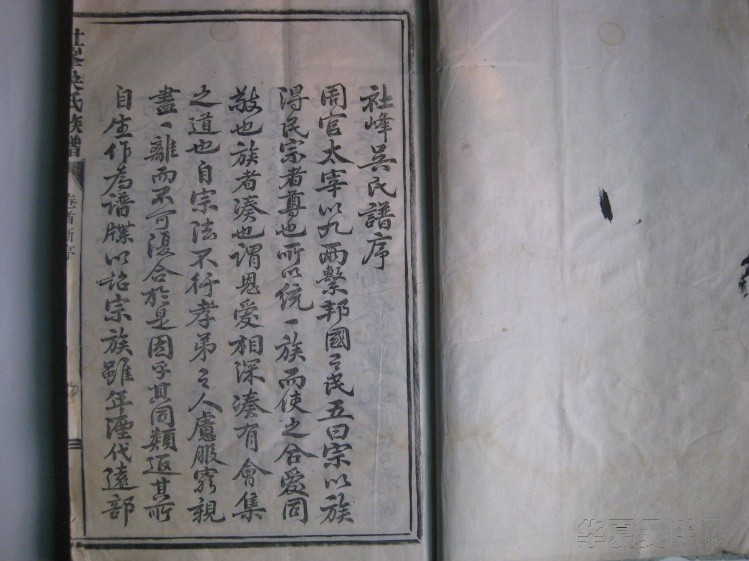 社峰吴氏譜序
周官太宰以九两繫邦國之民五曰宗以族
得民宗者尊也所以统一族而使之合爱同
敬也族者湊也谓恩爱相深湊有會集
之道也自宗法不行孝弟之人慮服窮親
盡一離而不可復合於是因乎其同類返其所
自生作為谱牒以詔宗族雖年湮代遠部
社峯吴氏族譜
卷首新序